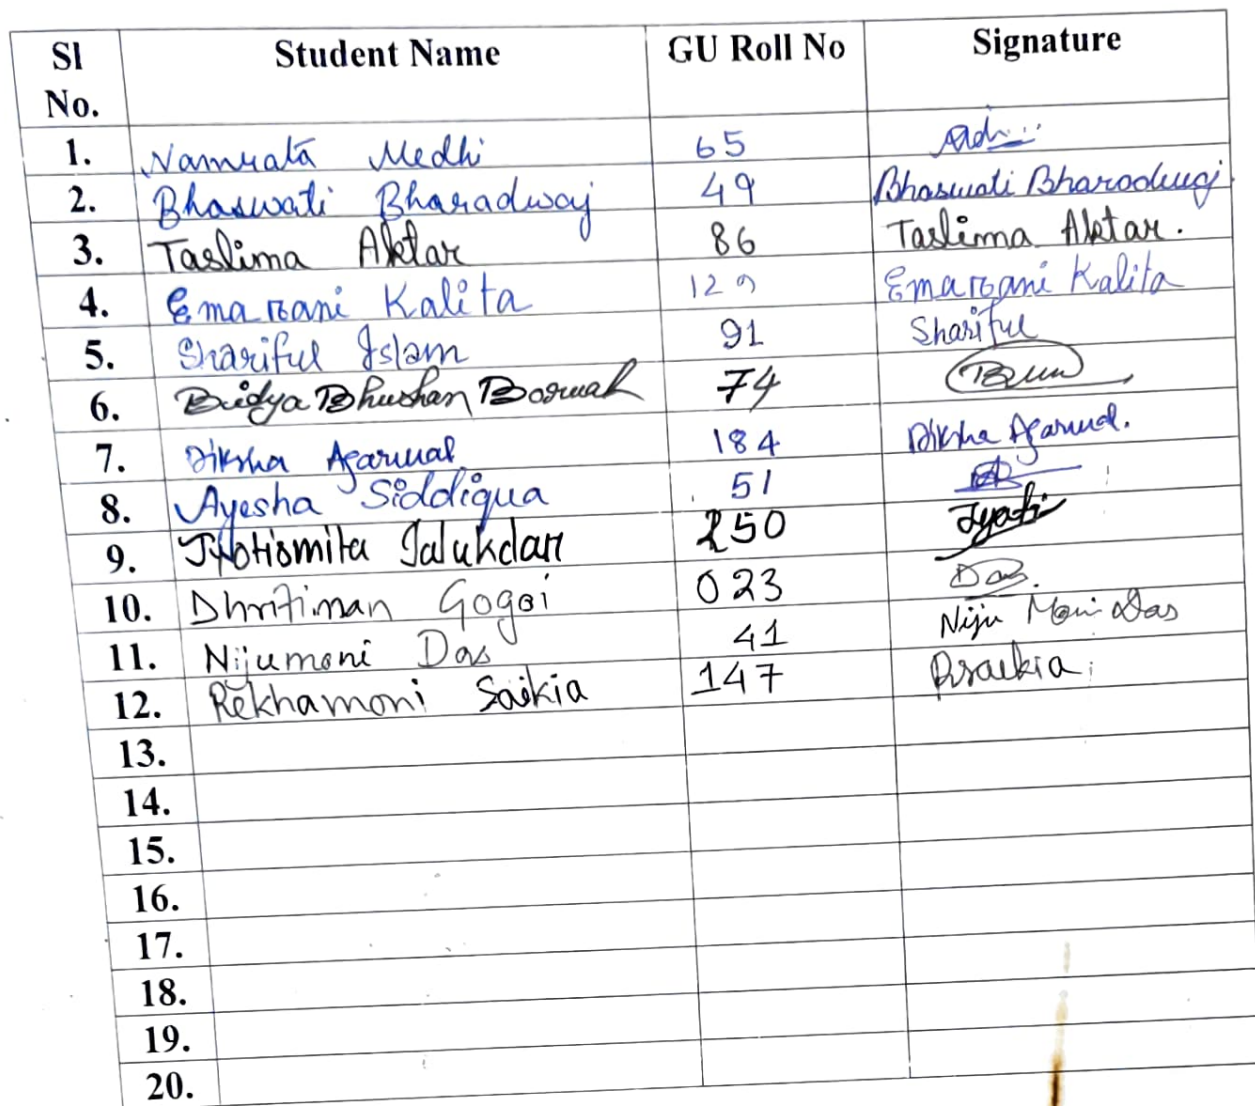 Sl No. Student Name GU Roll No Signature
1. Namrata Medhi 65
2. Bhaswati Bharadwaj 49 Bhaswati Bharadwaj
3. Taslima Aktar 86 Taslima Aktar.
4. Emarani Kalita 129 Emarani Kalita
5. Shariful Islam 91 Shariful
6. Bidya Bhushan Barmah 74
7. Diksha Agarwal 184 Diksha Agarwal.
8. Ayesha Siddiqua 51
9. Jyotismita Talukdar 250 Jyoti
10. Dhritiman Gogoi 023
11. Nijumoni Das 41 Niju Moni Das
12. Rekhamoni Saikia 147 Rsaikia
13.
14.
15.
16.
17.
18.
19.
20.